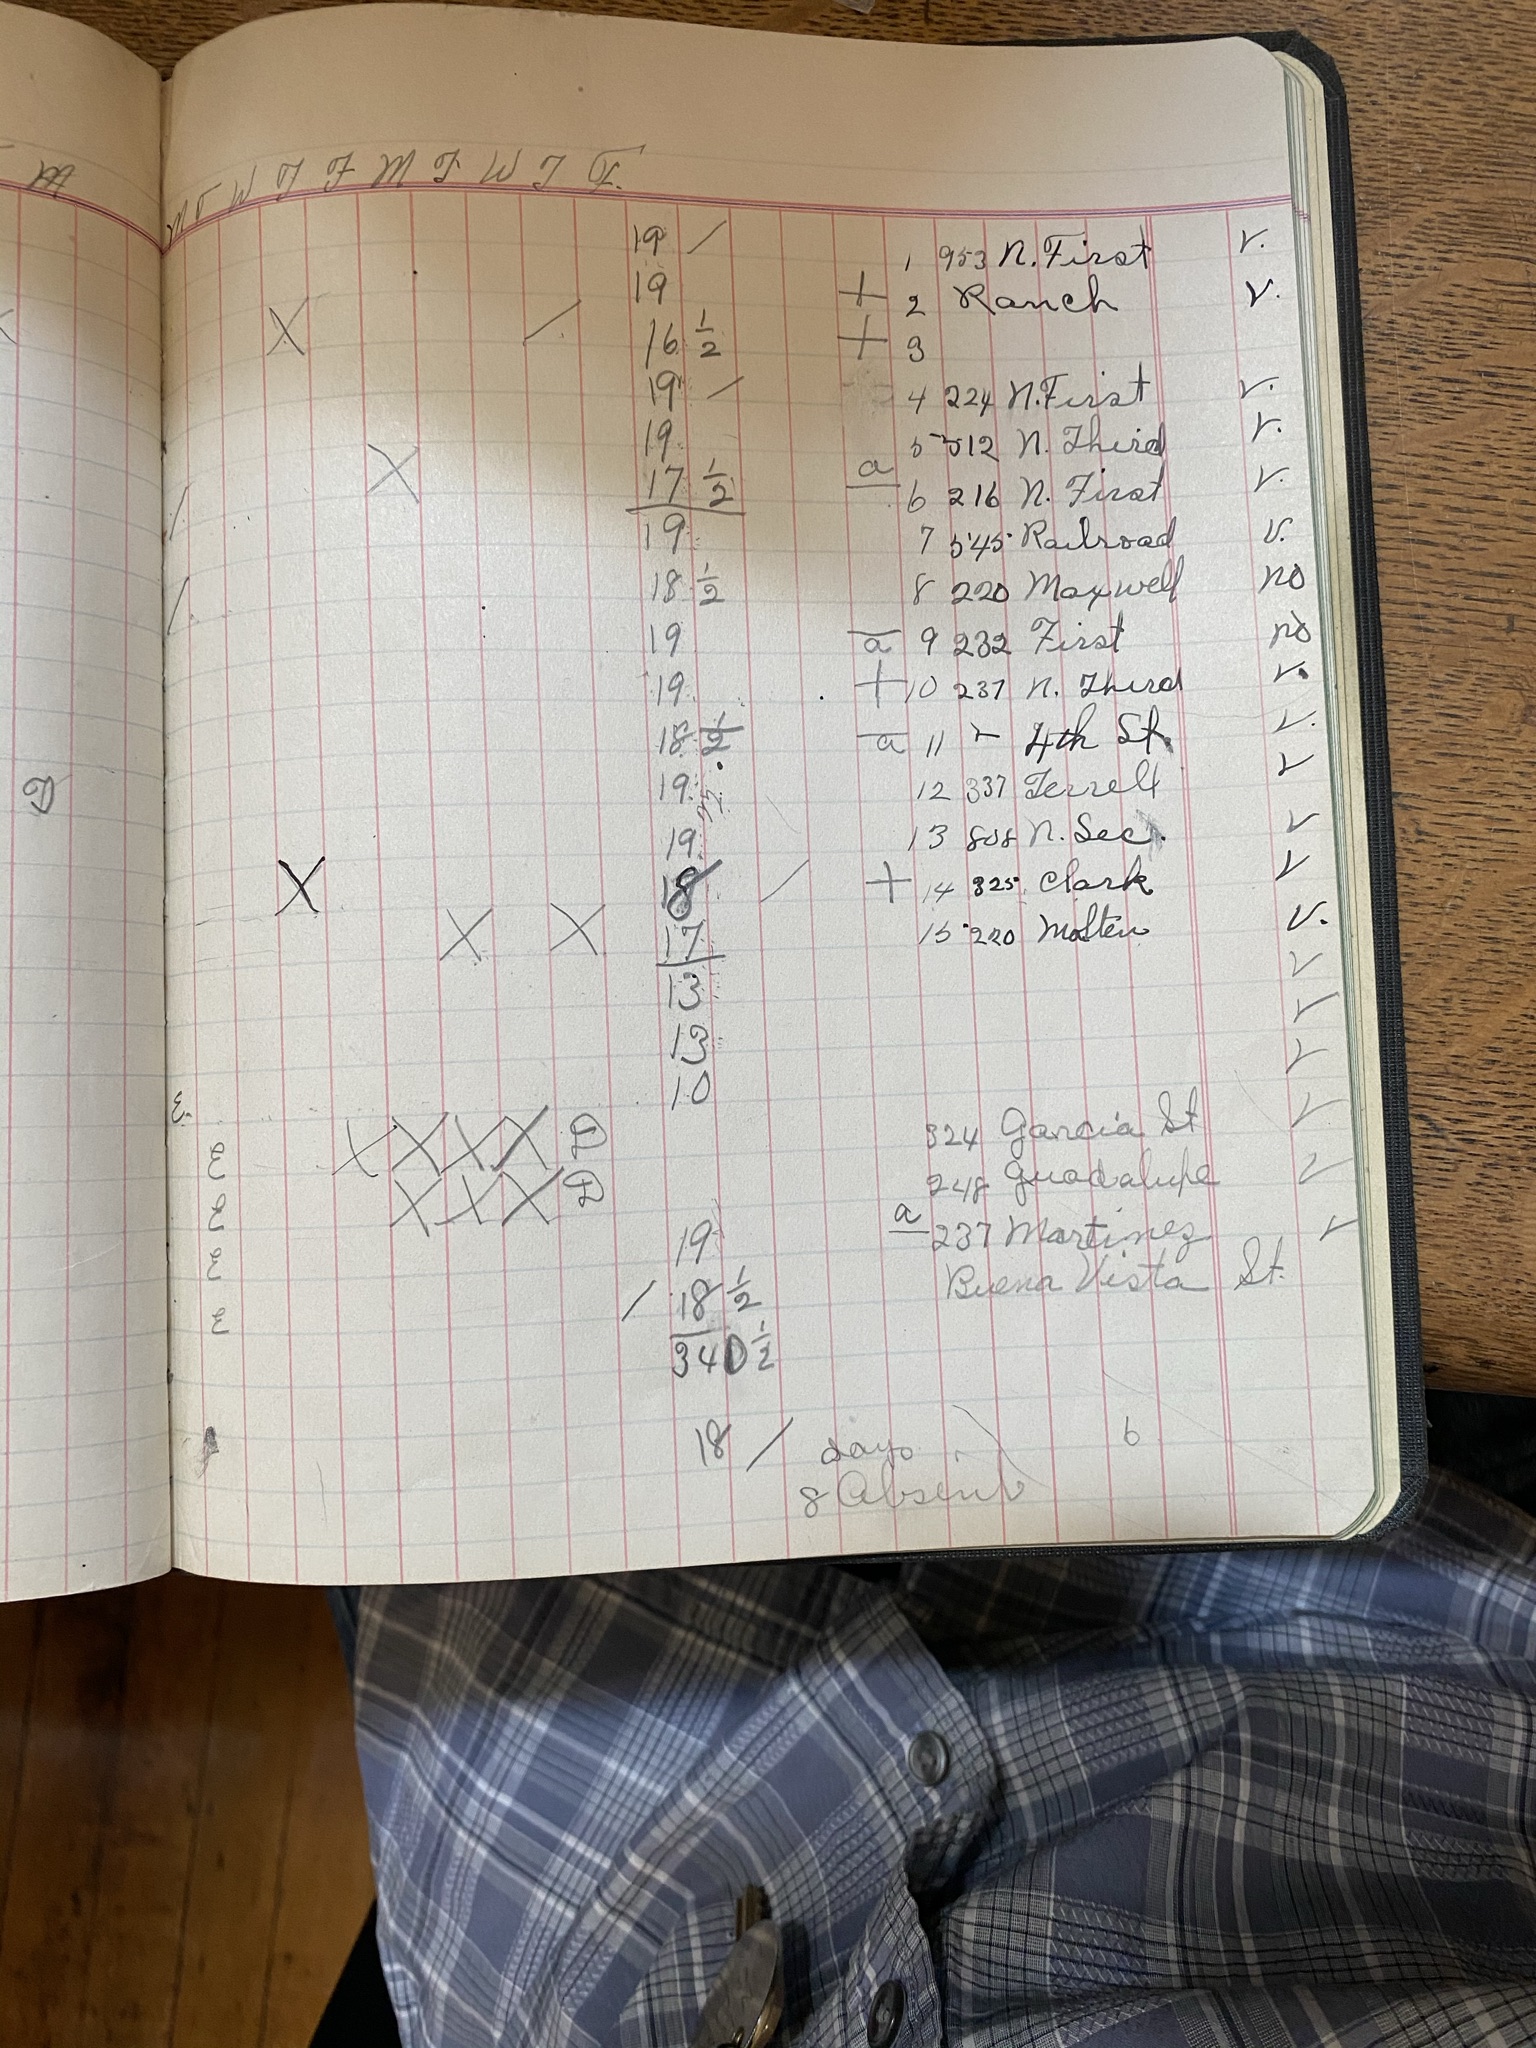 M
M T W T F M T W T F.
19 / 1 953 N. First V.
19 + 2 Ranch V.
X / 16 1/2 + 3
19 / 4 224 N. First V.
19 5 512 N. Third V.
X 17 1/2 a 6 216 N. First V.
19 7 545 Railroad V.
18 1/2 8 220 Maxwell no
19 a 9 232 First no
19 + 10 237 N. Third V.
18 1/2 a 11 4th St. V.
D
19 12 337 Terrell V
19 13 808 N. Sec. V
X 18 / + 14 325 Clark V
X X 17 15 220 V.
13 V
13 V
10 V
E.
E X X X X D 324 Garcia St V
E X X X D 248 Guadalupe V
E 19 a 237 Martinez V
E / 18 1/2 Buena Vista St.
340 1/2
18 / days 6
8 Absent